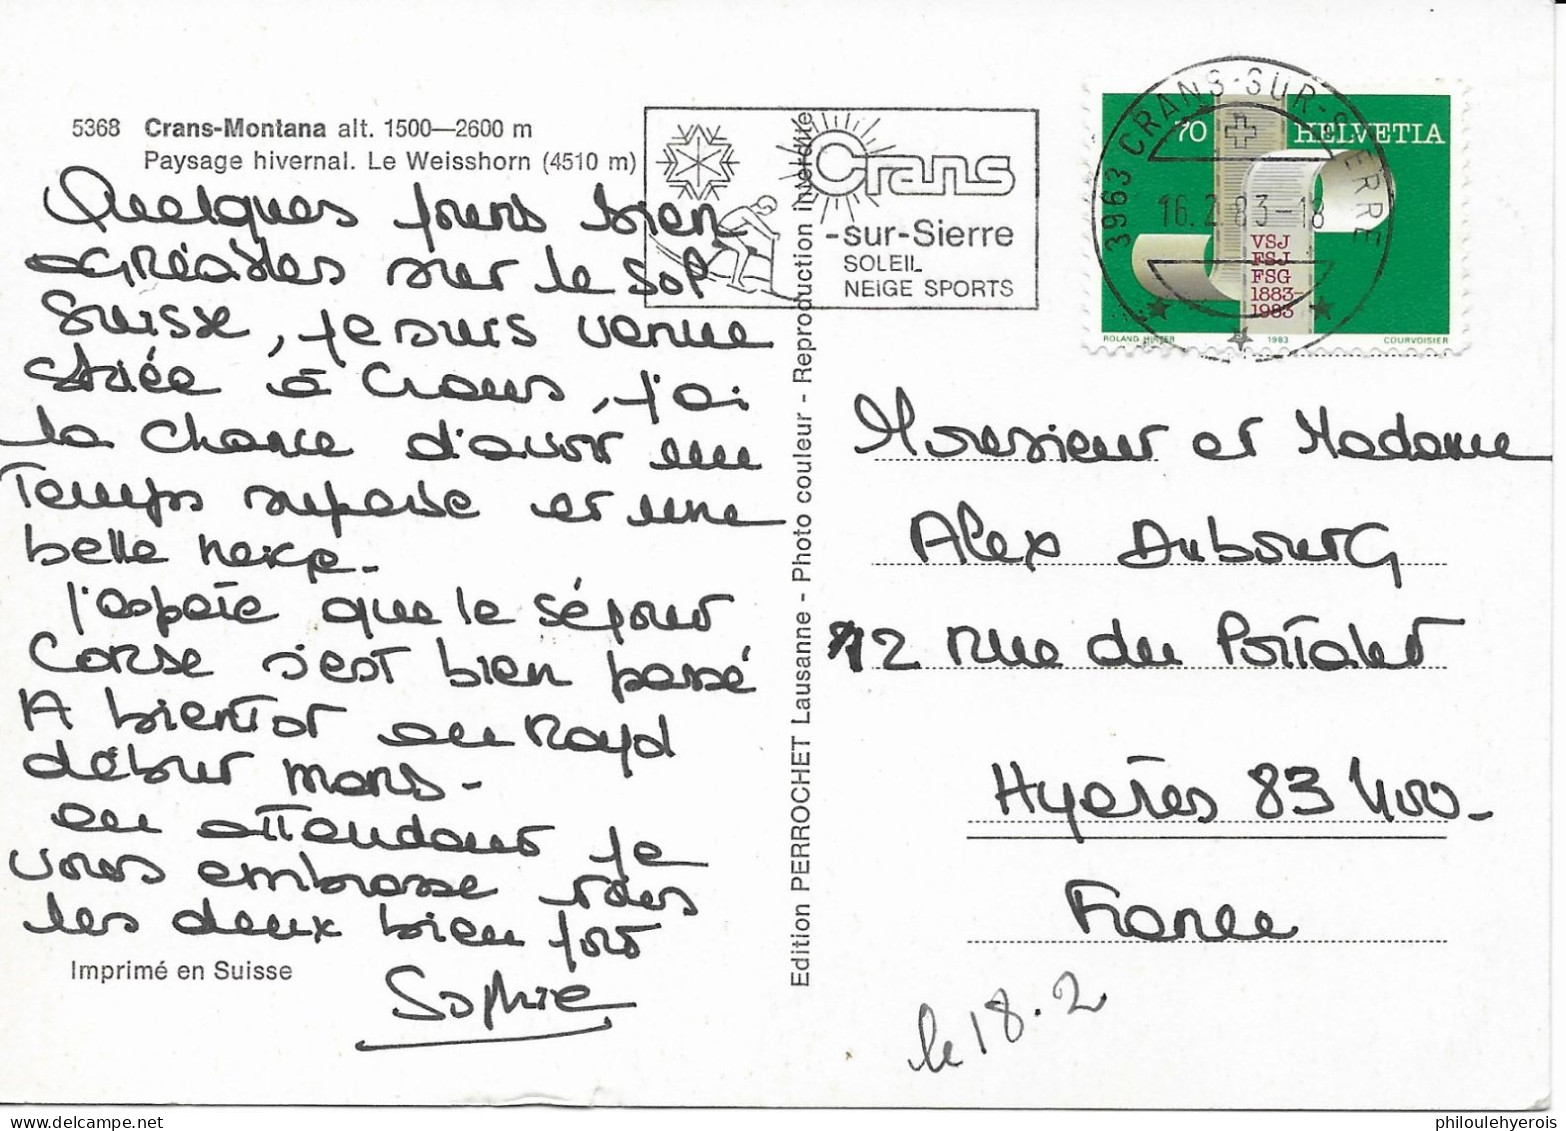 5368 Crans-Montana alt. 1500—2600 m
Paysage hivernal. Le Weisshorn (4510 m)
Quelques jours bien
agréables sur le sol
Suisse, je suis venue
skiée à Crans, j'ai
la chance d'avoir un
Temps superbe et une
belle neige-
J'espère que le séjour
Corse s'est bien passé
A bientôt au Rayol
début mars-
en attendant je
vous embrasse tous
les deux bien fort
Sophie
Imprimé en Suisse
Edition PERROCHET Lausanne - Photo couleur - Reproduction interdite
Crans
-sur-Sierre
SOLEIL
NEIGE SPORTS
3963 CRANS-SUR-SIERRE
16.2.83-18
70 HELVETIA
VSJ
FSJ
FSG
1883-
1983
ROLAND HIRTER 1983 COURVOISIER
Monsieur et Madame
Alex Dubourg
12 rue du Portalet
Hyères 83 400-
France
le 18.2
philoulehyerois